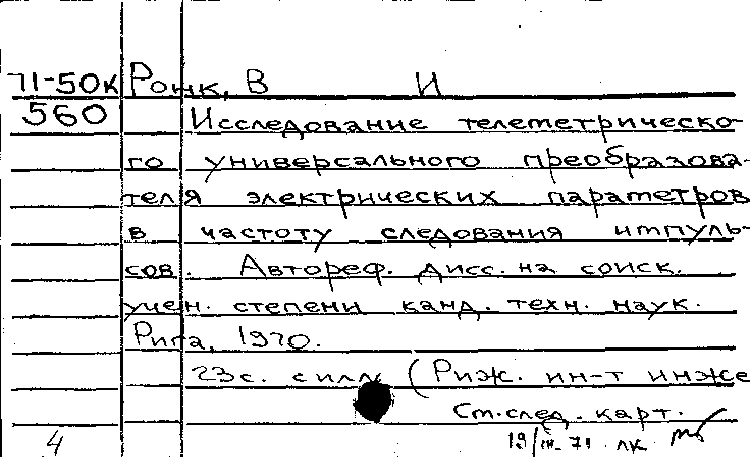 71-50к Ронк, В И
560 Исследование телеметрическо-
го универсального преобразова-
теля электрических параметров
в частоту следования импуль-
сов. Автореф. дисс. на соиск.
учен. степени канд. техн. наук.
Рига, 1970.
23с. с илл. (Риж. ин-т инже
См. след. карт.
4 19/III-71 лк